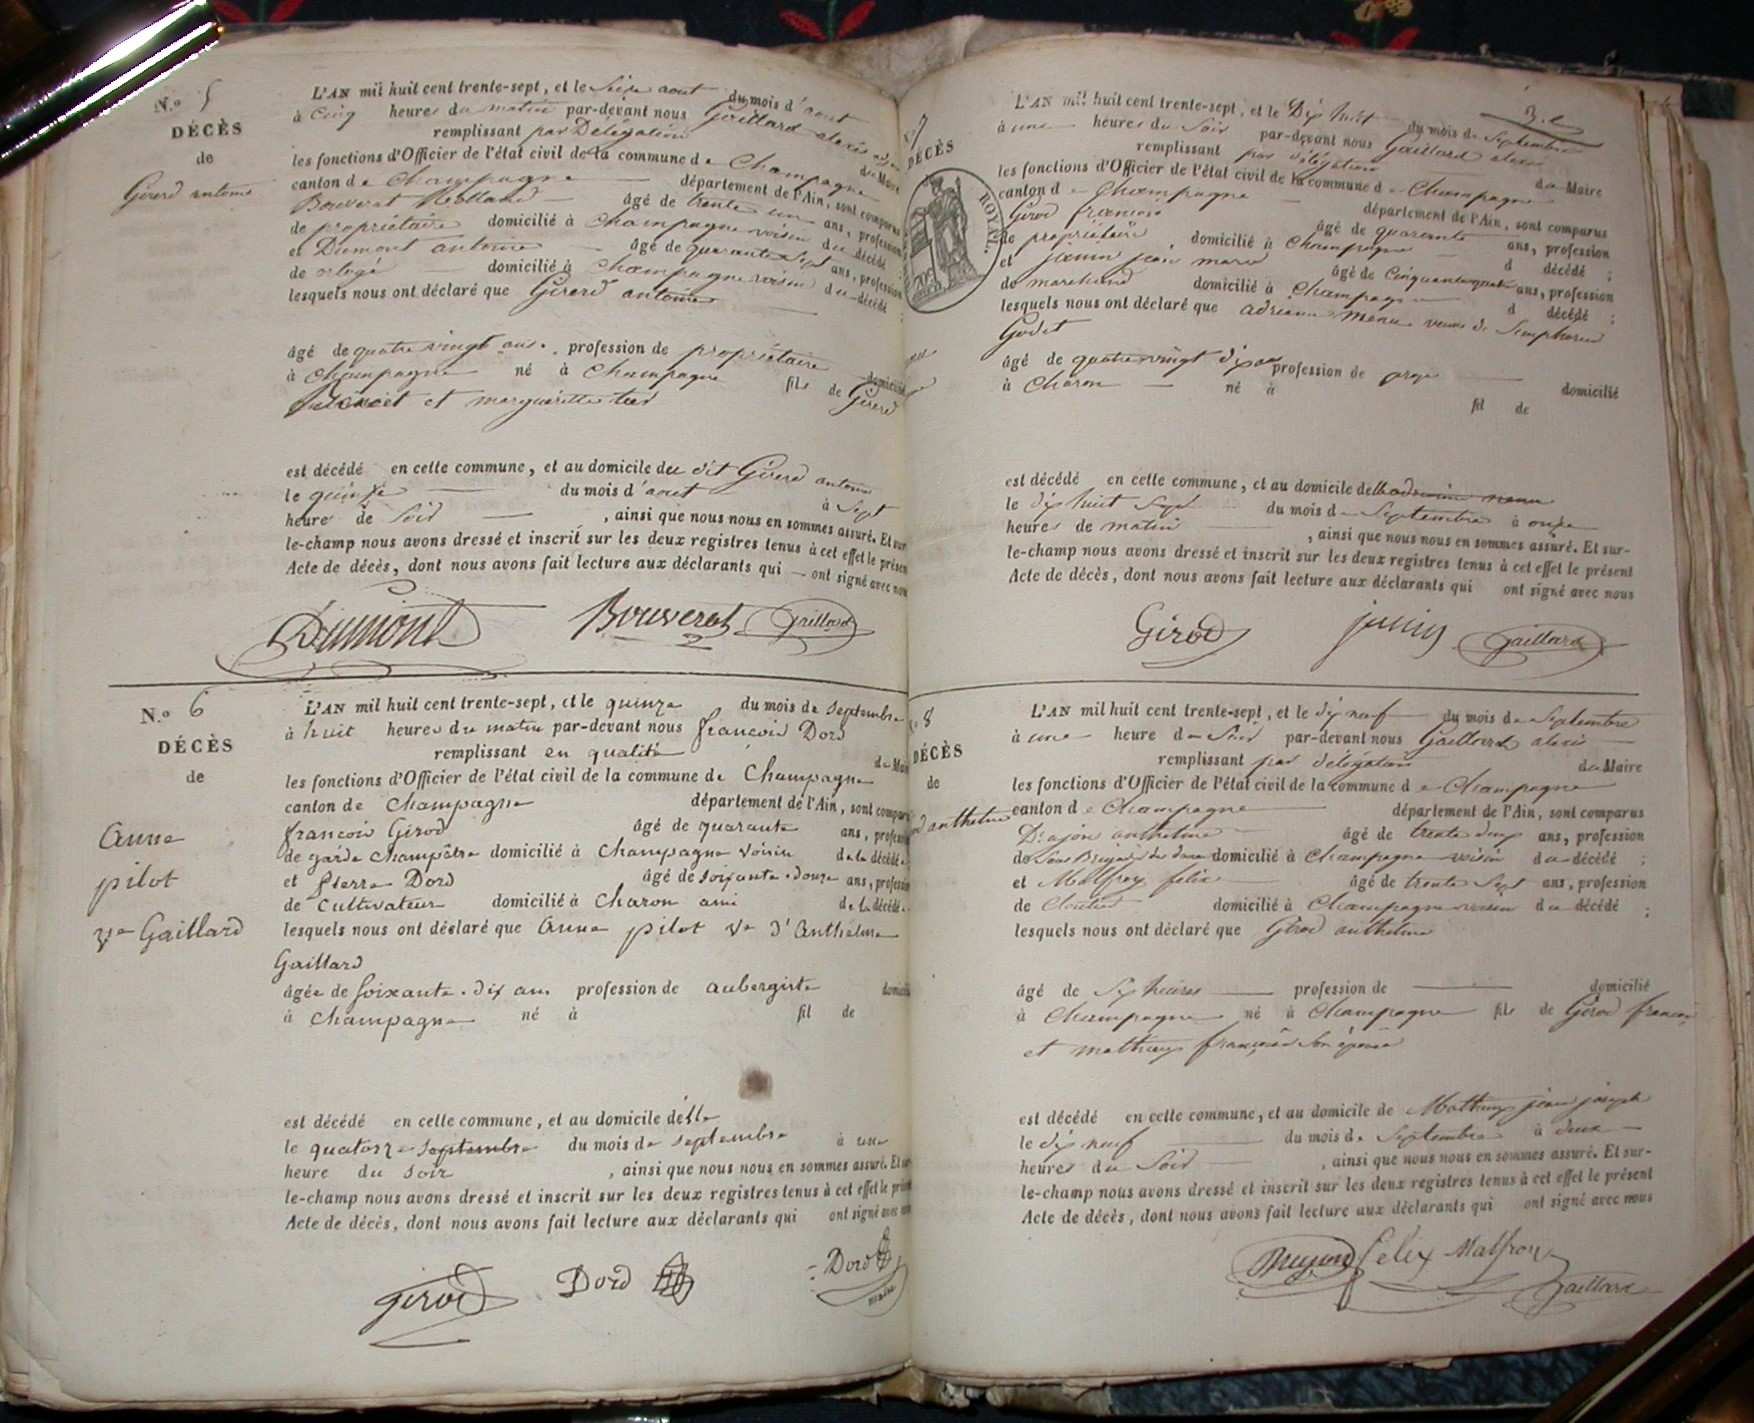 N.o 5
DÉCÈS
de
Girerd antoine
L'AN mil huit cent trente-sept, et le Seize aout du mois d'aout
à cinq heures du matin par-devant nous Gaillard alexis
remplissant par Délégation du Maire
les fonctions d'Officier de l'état civil de la commune de Champagne
canton de Champagne département de l'Ain, sont comparus
Bouverat âgé de trente un ans, profession
de propriétaire domicilié à Champagne voisin du décédé
et Dumont antoine âgé de quarante sept ans, profession
de domicilié à Champagne voisin du décédé
lesquels nous ont déclaré que Girerd antoine
âgé de quatre vingt ans profession de propriétaire domicilié
à Champagne né à Champagne fils de Girerd
et marguerite
est décédé en cette commune, et au domicile du dit Girerd antoine
le quinze du mois d'aout à Sept
heures de Soir , ainsi que nous nous en sommes assuré. Et sur
le-champ nous avons dressé et inscrit sur les deux registres tenus à cet effet le présen
Acte de décès, dont nous avons fait lecture aux déclarants qui ont signé avec nous
Dumont Bouverat Gaillard
N.o 6
DÉCÈS
de
Anne
pilot
Ve Gaillard
L'AN mil huit cent trente-sept, et le quinze du mois de septembre
à huit heures du matin par-devant nous françois Dord
remplissant en qualité de Maire
les fonctions d'Officier de l'état civil de la commune de Champagne
canton de Champagne département de l'Ain, sont comparu
françois Girod âgé de quarante ans, profession
de garde champêtre domicilié à Champagne voisin de la décédée
et pierre Dord âgé de soixante-douze ans, profession
de cultivateur domicilié à Charon ami de la décédée
lesquels nous ont déclaré que Anne pilot Ve d'Anthelme
Gaillard
âgée de soixante-dix ans profession de aubergiste domicilié
à Champagne né à fil de
est décédé en cette commune, et au domicile d'elle
le quatorze septembre du mois de septembre à une
heure du soir , ainsi que nous nous en sommes assuré. Et sur
le-champ nous avons dressé et inscrit sur les deux registres tenus à cet effet le prése
Acte de décès, dont nous avons fait lecture aux déclarants qui ont signé avec nous
Girod Dord Dord
maire
N.o 7
DÉCÈS
ROYAL.
L'AN mil huit cent trente-sept, et le Dix huit du mois de Septembre
à une heures du Soir par-devant nous Gaillard alexis
remplissant par délégation du Maire
les fonctions d'Officier de l'état civil de la commune de Champagne
canton de Champagne département de l'Ain, sont comparus
Girod françois âgé de quarante ans, profession
de propriétaire , domicilié à Champagne d décédé ;
et janin jean marie âgé de Cinquante quatre ans, profession
de marchand domicilié à Champagne d décédé ;
lesquels nous ont déclaré que adrienne menu veuve de Simphorien
Godet
âgé de quatre vingt dix ans profession de domicilié
à Charon né à fil de
est décédé en cette commune, et au domicile de
le dix huit Sept du mois de Septembre à onze
heures de matin , ainsi que nous nous en sommes assuré. Et sur-
le-champ nous avons dressé et inscrit sur les deux registres tenus à cet effet le présent
Acte de décès, dont nous avons fait lecture aux déclarants qui ont signé avec nous
Girod janin Gaillard
8
DÉCÈS
de
anthelme
L'AN mil huit cent trente-sept, et le dix neuf du mois de Septembre
à une heure de Soir par-devant nous Gaillard alexis
remplissant par délégation du Maire
les fonctions d'Officier de l'état civil de la commune de Champagne
canton de Champagne département de l'Ain, sont comparus
anthelme âgé de trente deux ans, profession
de Sous Brigadier des douanes domicilié à Champagne voisin du décédé ;
et Malfroy felix âgé de trente Sept ans, profession
de Cloutier domicilié à Champagne voisin du décédé ;
lesquels nous ont déclaré que Girod anthelme
âgé de Six heures profession de domicilié
à Champagne né à Champagne fils de Girod françois
et mathieu françoise Son épouse
est décédé en cette commune, et au domicile de Mathieu jean joseph
le dix neuf du mois de Septembre à deux
heures du Soir , ainsi que nous nous en sommes assuré. Et sur-
le-champ nous avons dressé et inscrit sur les deux registres tenus à cet effet le présent
Acte de décès, dont nous avons fait lecture aux déclarants qui ont signé avec nous
felix Malfroy Gaillard